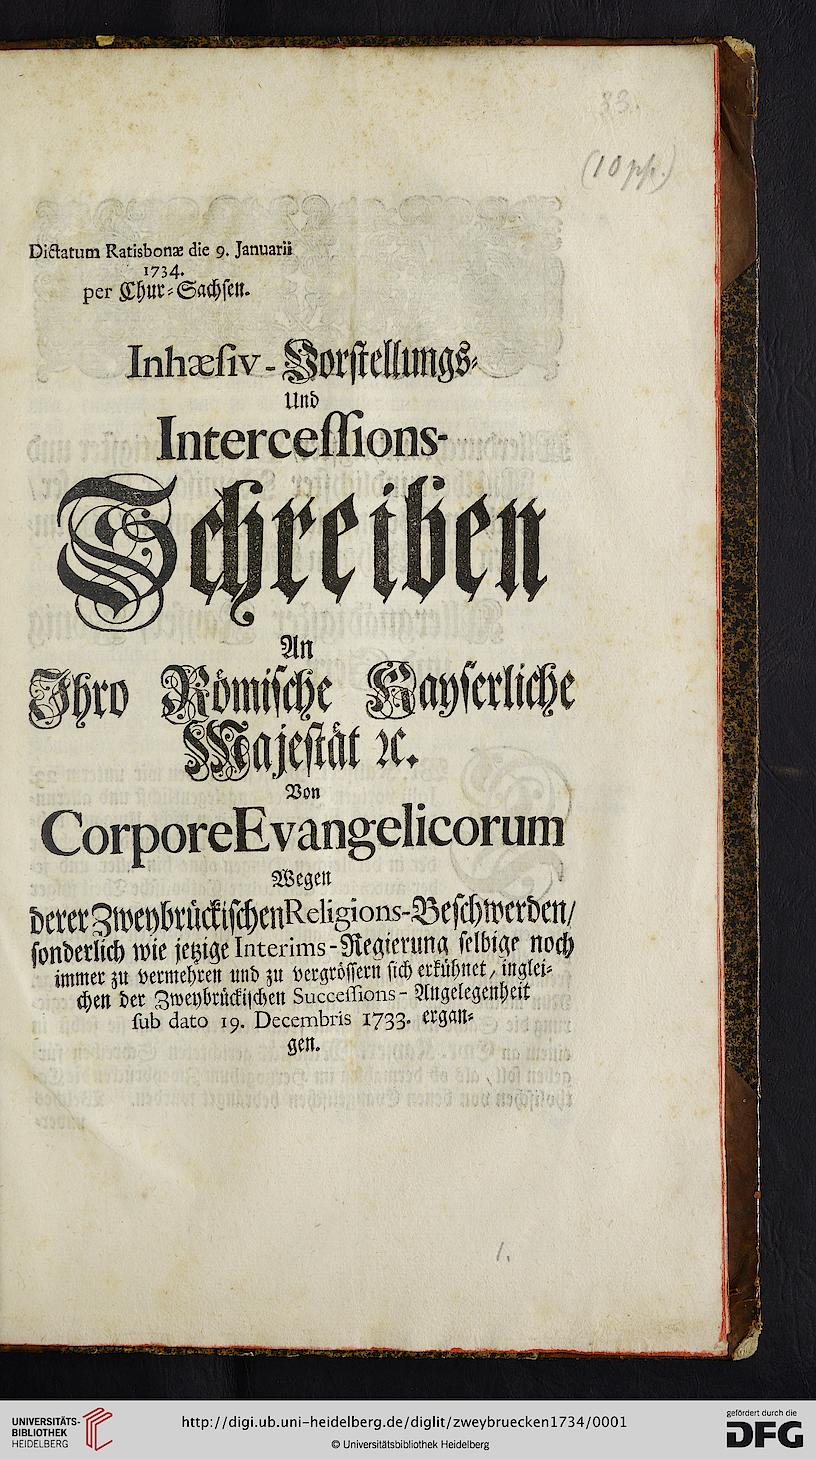 33.
(10 pp.)
Dictatum Ratisbonæ die 9. Januarii
1734.
per Chur-Sachsen.
Inhæsiv-Vorstellungs-
Und
Intercessions-
Schreiben
An
Ihro Römische Kayserliche
Majestät ꝛc.
Von
Corpore Evangelicorum
Wegen
derer Zweybrückischen Religions-Beschwerden/
sonderlich wie jetzige Interims-Regierung selbige noch
immer zu vermehren und zu vergrössern sich erkühnet, inglei-
chen der Zweybrückischen Successions-Angelegenheit
sub dato 19. Decembris 1733. ergan-
gen.
1.
UNIVERSITÄTS-
BIBLIOTHEK
HEIDELBERG
http://digi.ub.uni-heidelberg.de/diglit/zweybruecken1734/0001
© Universitätsbibliothek Heidelberg
gefördert durch die
DFG